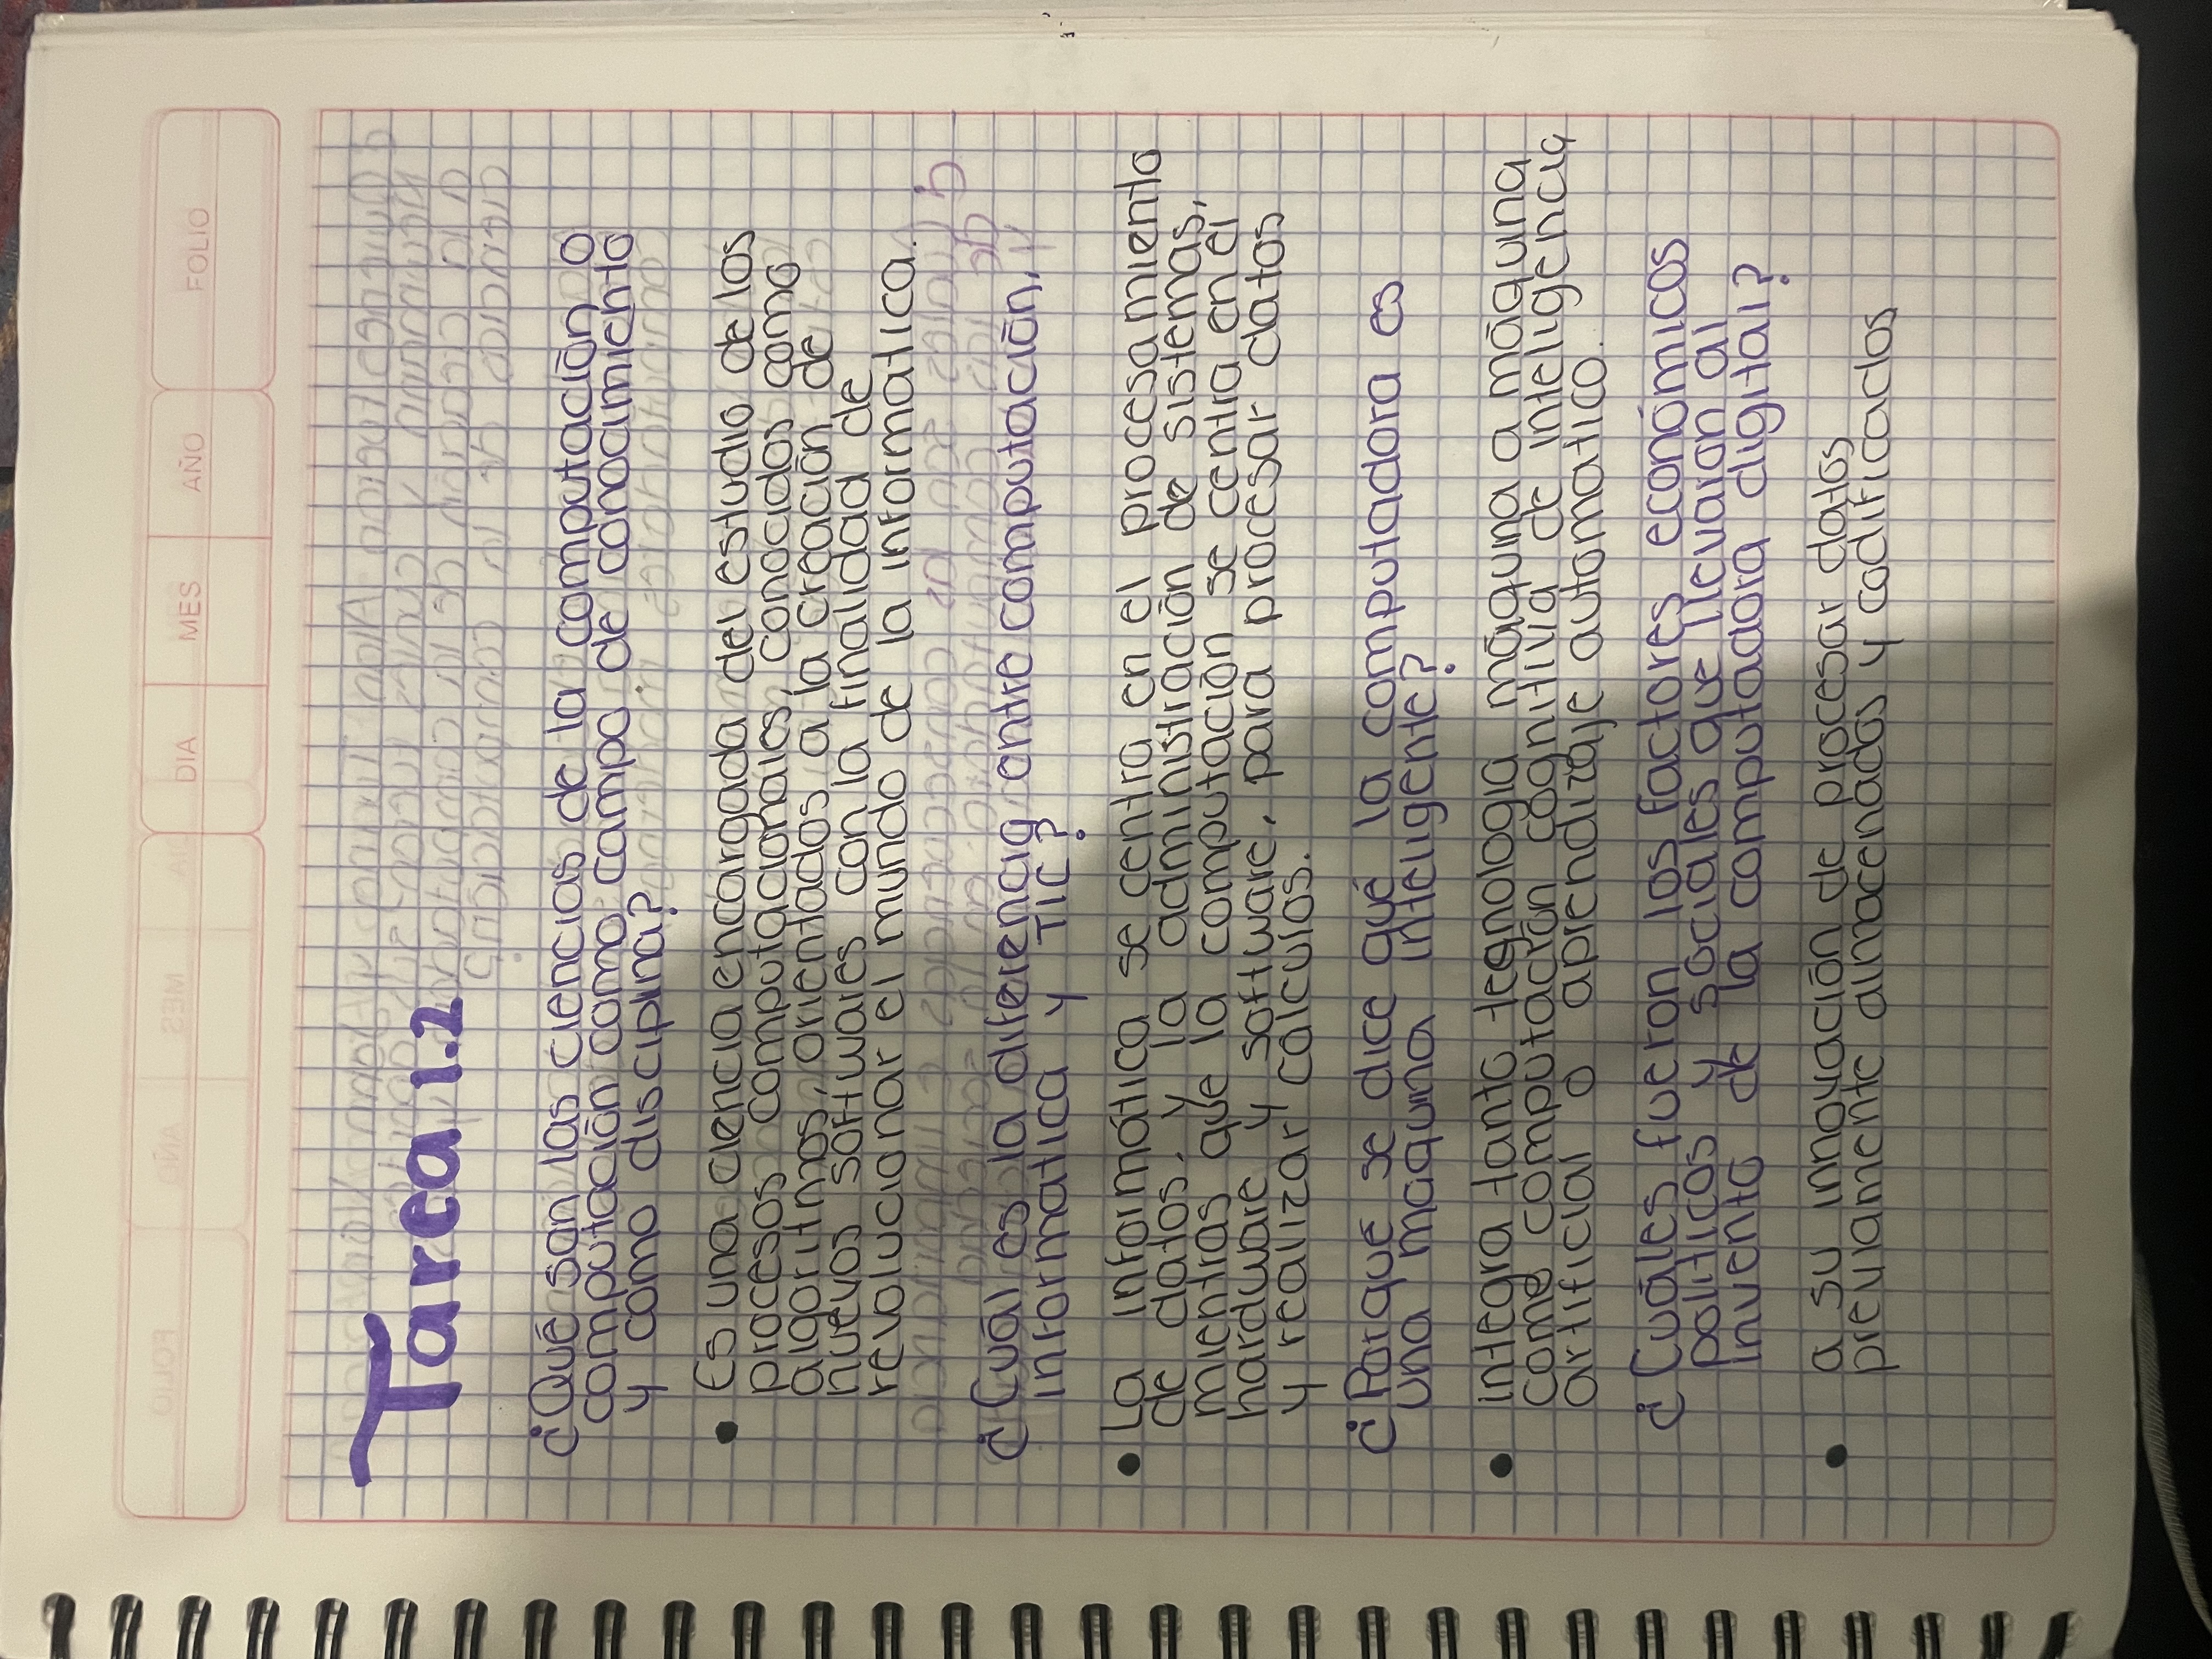 DIA MES AÑO FOLIO
Tarea 1.2
¿Qué son las ciencias de la computación o
computación como campo de conocimiento
y como disciplina?
• Es una ciencia encargada del estudio de los
procesos computacionales, conocidos como
algoritmos, orientados a la creación de
nuevos softwares con la finalidad de
revolucionar el mundo de la informatica.
¿Cuál es la diferencia entre computación,
informatica y TIC?
• La informática se centra en el procesamiento
de datos, y la administración de sistemas,
mientras que la computación se centra en el
hardware y software, para procesar datos
y realizar calculos.
¿Porque se dice qué la computadora es
una maquina inteligente?
• integra tanto tegnologia máquina a máquina
como computación cognitiva de inteligencia
artificial o aprendizaje automatico.
¿Cuáles fueron los factores económicos
politicos y sociales que llevaron al
invento de la computadora digital?
• a su innovación de procesar datos
previamente almacenados y codificados